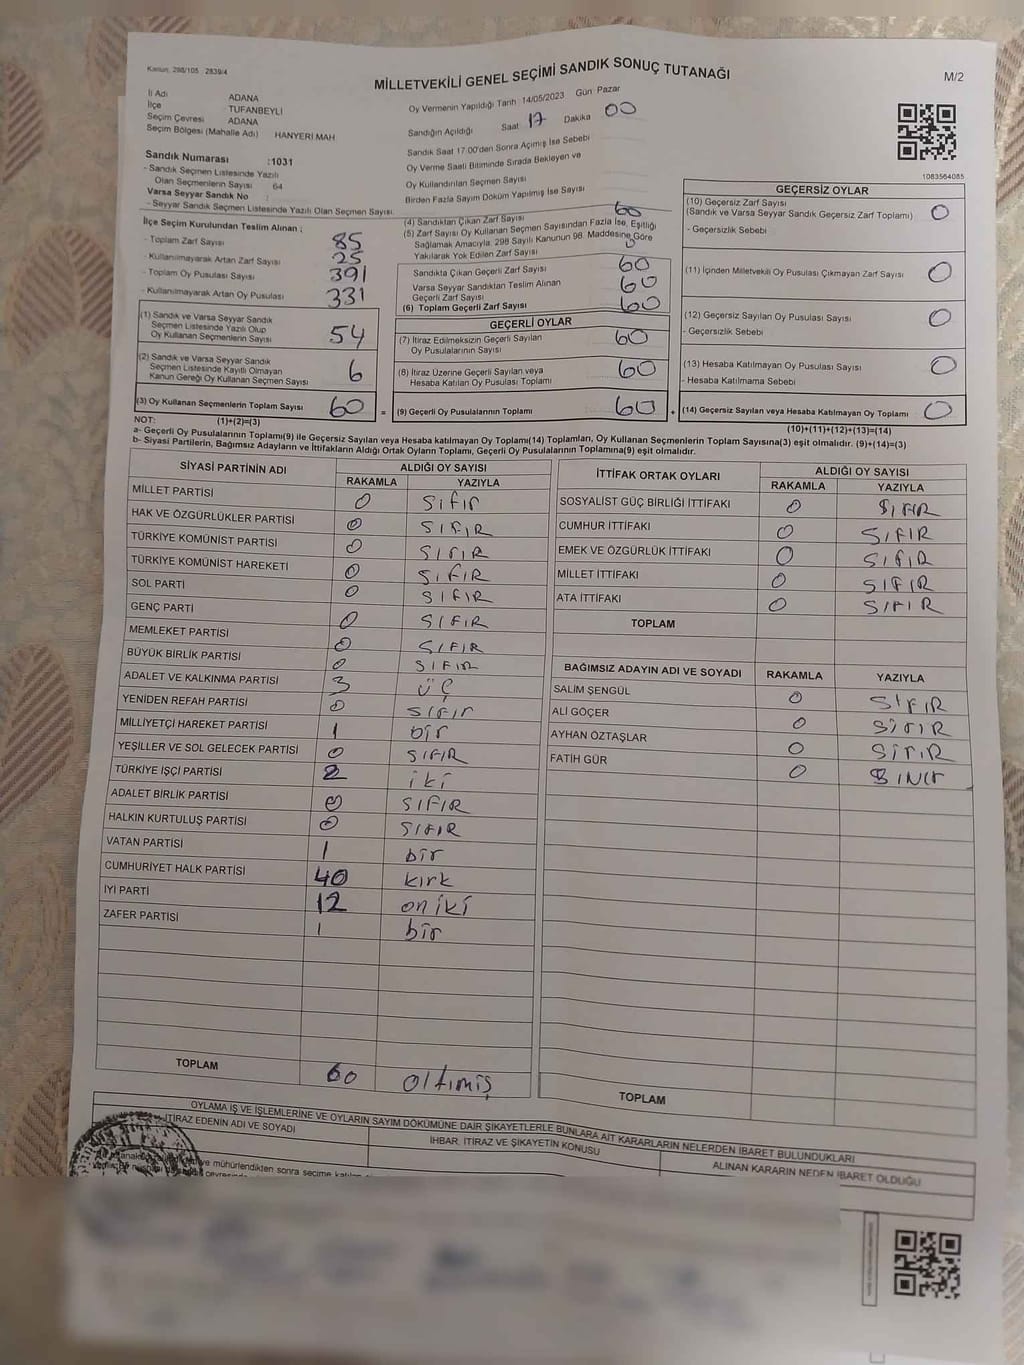 Kanun: 298/105 - 2839/4
MİLLETVEKİLİ GENEL SEÇİMİ SANDIK SONUÇ TUTANAĞI
M/2
İl Adı ADANA
İlçe TUFANBEYLİ
Seçim Çevresi ADANA
Seçim Bölgesi (Mahalle Adı) HANYERİ MAH
Oy Vermenin Yapıldığı Tarih :14/05/2023 Gün: Pazar
Sandığın Açıldığı Saat 17 Dakika 00
Sandık Saat 17.00'den Sonra Açımış İse Sebebi
Oy Verme Saati Bitiminde Sırada Bekleyen ve
Oy Kullandırılan Seçmen Sayısı
Birden Fazla Sayım Döküm Yapılmış İse Sayısı
1083564085
Sandık Numarası :1031
- Sandık Seçmen Listesinde Yazılı
Olan Seçmenlerin Sayısı 64
Varsa Seyyar Sandık No :
- Seyyar Sandık Seçmen Listesinde Yazılı Olan Seçmen Sayısı
İlçe Seçim Kurulundan Teslim Alınan ;
- Toplam Zarf Sayısı 85
- Kullanılmayarak Artan Zarf Sayısı 25
- Toplam Oy Pusulası Sayısı 391
- Kullanılmayarak Artan Oy Pusulası 331
(1) Sandık ve Varsa Seyyar Sandık
Seçmen Listesinde Yazılı Olup
Oy Kullanan Seçmenlerin Sayısı 54
(2) Sandık ve Varsa Seyyar Sandık
Seçmen Listesinde Kayıtlı Olmayan
Kanun Gereği Oy Kullanan Seçmen Sayısı 6
(3) Oy Kullanan Seçmenlerin Toplam Sayısı 60 =
(1)+(2)=(3)
(4) Sandıktan Çıkan Zarf Sayısı 60
(5) Zarf Sayısı Oy Kullanan Seçmen Sayısından Fazla İse, Eşitliği
Sağlamak Amacıyla, 298 Sayılı Kanunun 98. Maddesine Göre
Yakılarak Yok Edilen Zarf Sayısı 0
Sandıkta Çıkan Geçerli Zarf Sayısı 60
Varsa Seyyar Sandıktan Teslim Alınan
Geçerli Zarf Sayısı 60
(6) Toplam Geçerli Zarf Sayısı 60
GEÇERLİ OYLAR
(7) İtiraz Edilmeksizin Geçerli Sayılan
Oy Pusulalarının Sayısı 60
(8) İtiraz Üzerine Geçerli Sayılan veya
Hesaba Katılan Oy Pusulası Toplamı 60
(9) Geçerli Oy Pusulalarının Toplamı 60 +
GEÇERSİZ OYLAR
(10) Geçersiz Zarf Sayısı 0
(Sandık ve Varsa Seyyar Sandık Geçersiz Zarf Toplamı)
- Geçersizlik Sebebi
(11) İçinden Milletvekili Oy Pusulası Çıkmayan Zarf Sayısı 0
(12) Geçersiz Sayılan Oy Pusulası Sayısı 0
- Geçersizlik Sebebi
(13) Hesaba Katılmayan Oy Pusulası Sayısı 0
- Hesaba Katılmama Sebebi
(14) Geçersiz Sayılan veya Hesaba Katılmayan Oy Toplamı 0
(10)+(11)+(12)+(13)=(14)
NOT:
a- Geçerli Oy Pusulalarının Toplamı(9) ile Geçersiz Sayılan veya Hesaba katılmayan Oy Toplamı(14) Toplamları, Oy Kullanan Seçmenlerin Toplam Sayısına(3) eşit olmalıdır. (9)+(14)=(3)
b- Siyasi Partilerin, Bağımsız Adayların ve İttifakların Aldığı Ortak Oyların Toplamı, Geçerli Oy Pusulalarının Toplamına(9) eşit olmalıdır.
SİYASİ PARTİNİN ADI ALDIĞI OY SAYISI
RAKAMLA YAZIYLA
MİLLET PARTİSİ 0 sıfır
HAK VE ÖZGÜRLÜKLER PARTİSİ 0 SIFIR
TÜRKİYE KOMÜNİST PARTİSİ 0 SIFIR
TÜRKİYE KOMÜNİST HAREKETİ 0 SIFIR
SOL PARTİ 0 SIFIR
GENÇ PARTİ 0 SIFIR
MEMLEKET PARTİSİ 0 SIFIR
BÜYÜK BİRLİK PARTİSİ 0 SIFIR
ADALET VE KALKINMA PARTİSİ 3 üç
YENİDEN REFAH PARTİSİ 0 sıfır
MİLLİYETÇİ HAREKET PARTİSİ 1 bir
YEŞİLLER VE SOL GELECEK PARTİSİ 0 SIFIR
TÜRKİYE İŞÇİ PARTİSİ 2 iki
ADALET BİRLİK PARTİSİ 0 SIFIR
HALKIN KURTULUŞ PARTİSİ 0 SIFIR
VATAN PARTİSİ 1 bir
CUMHURİYET HALK PARTİSİ 40 kırk
İYİ PARTİ 12 on iki
ZAFER PARTİSİ 1 bir
TOPLAM 60 altımış
İTTİFAK ORTAK OYLARI ALDIĞI OY SAYISI
RAKAMLA YAZIYLA
SOSYALİST GÜÇ BİRLİĞİ İTTİFAKI 0 SIFIR
CUMHUR İTTİFAKI 0 SIFIR
EMEK VE ÖZGÜRLÜK İTTİFAKI 0 SIFIR
MİLLET İTTİFAKI 0 SIFIR
ATA İTTİFAKI 0 SIFIR
TOPLAM
BAĞIMSIZ ADAYIN ADI VE SOYADI RAKAMLA YAZIYLA
SALİM ŞENGÜL 0 SIFIR
ALİ GÖÇER 0 SIFIR
AYHAN ÖZTAŞLAR 0 SIFIR
FATİH GÜR 0
TOPLAM
OYLAMA İŞ VE İŞLEMLERİNE VE OYLARIN SAYIM DÖKÜMÜNE DAİR ŞİKAYETLERLE BUNLARA AİT KARARLARIN NELERDEN İBARET BULUNDUKLARI
İTİRAZ EDENİN ADI VE SOYADI İHBAR, İTİRAZ VE ŞİKAYETİN KONUSU ALINAN KARARIN NEDEN İBARET OLDUĞU
mühürlendikten sonra seçime